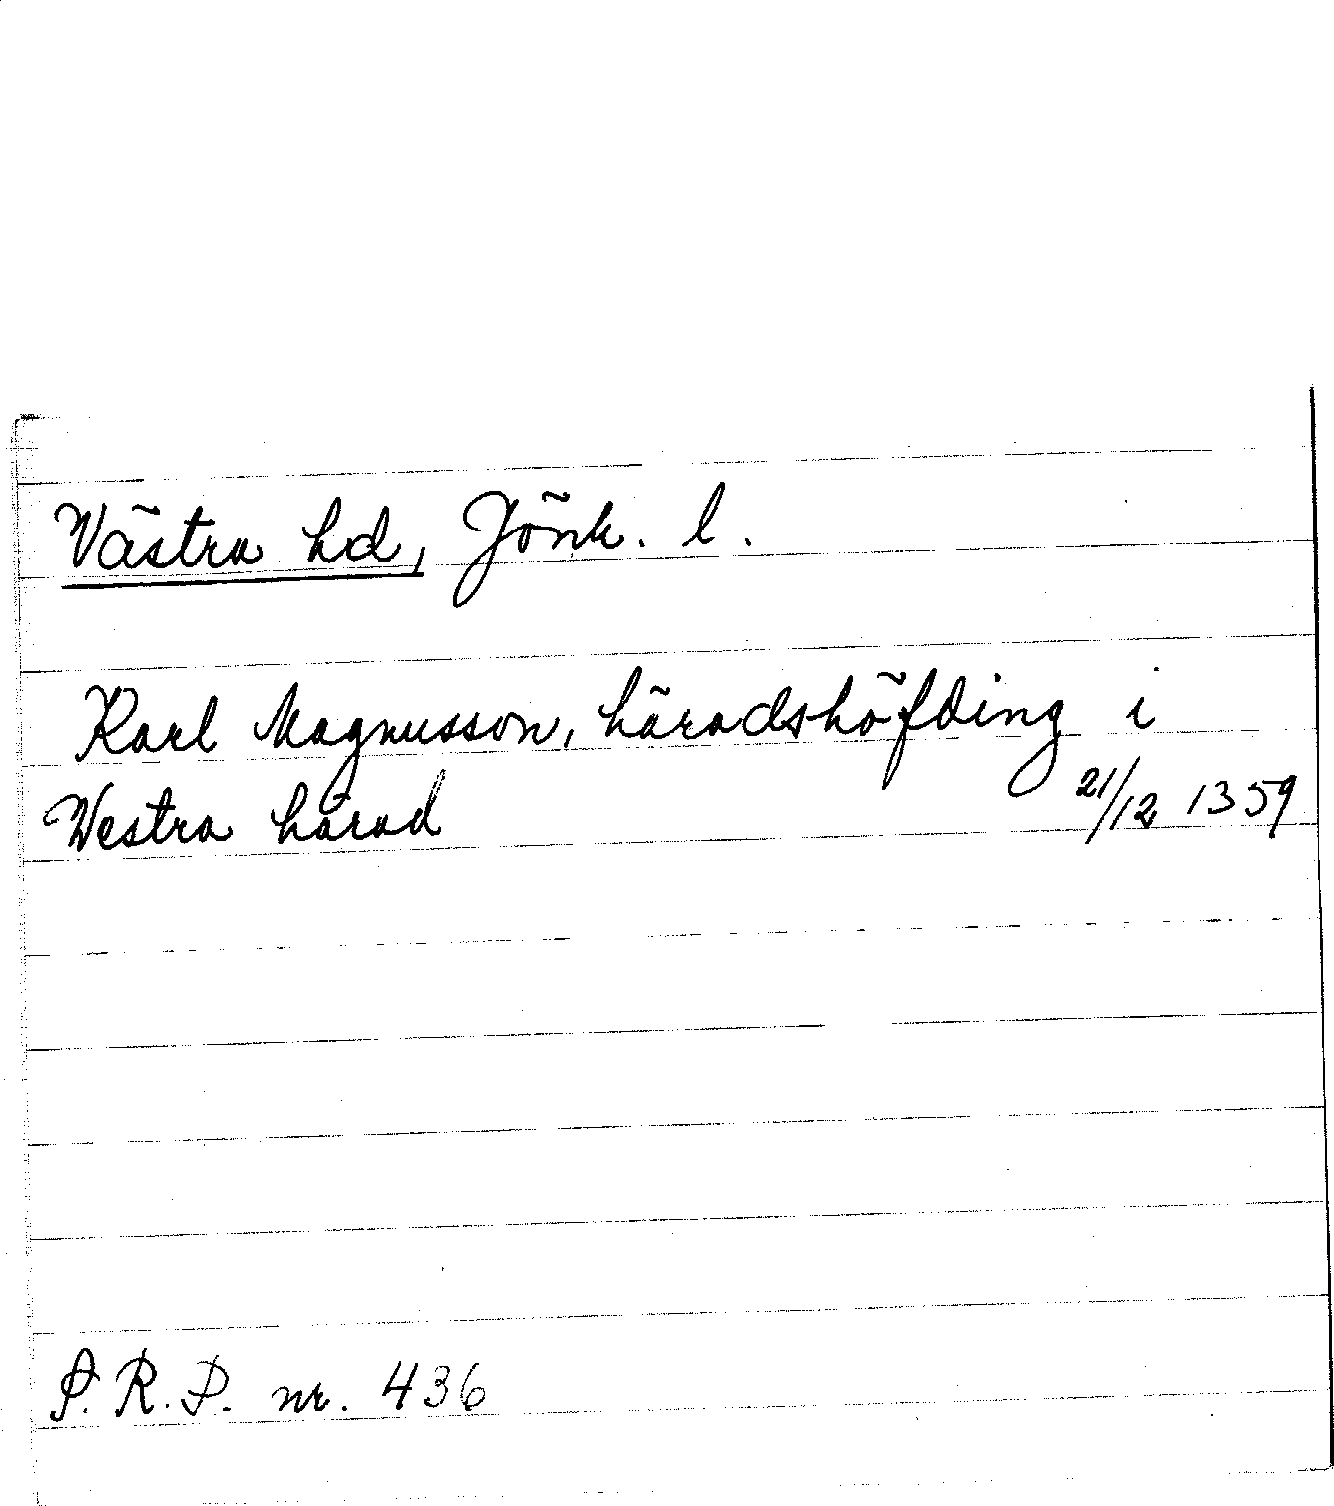 Västra hd, Jönk. l.
Karl Magnusson, häradshöfding i
Westra härad 21/12 1359
S.R.P. nr. 436